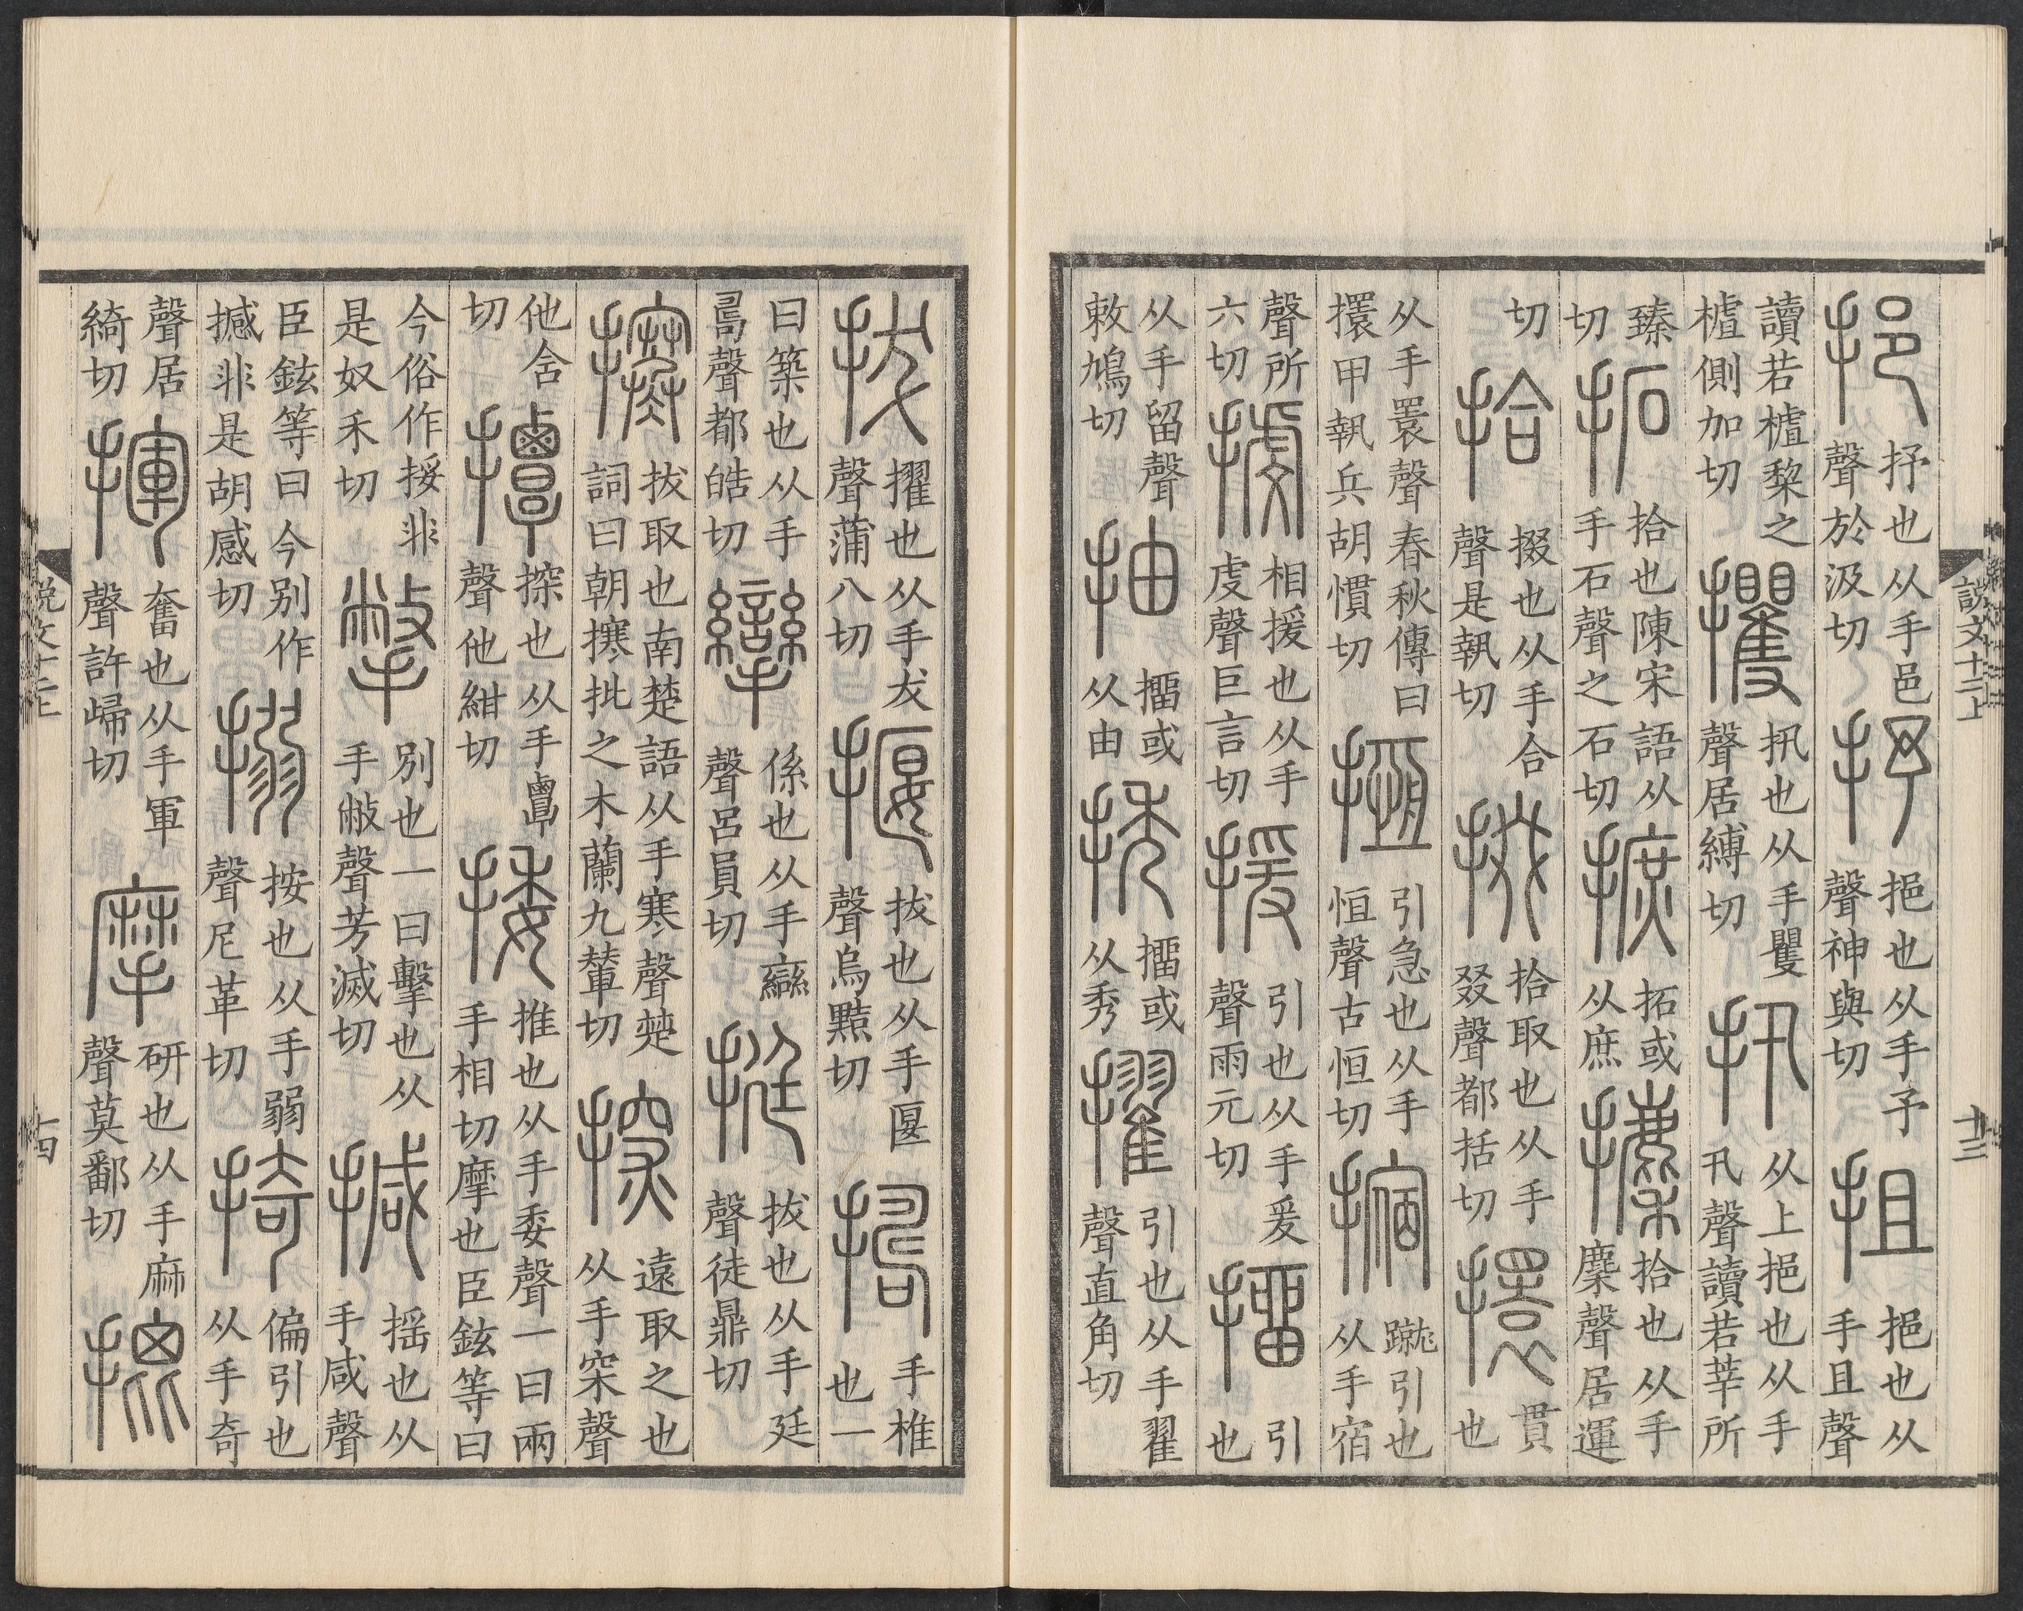 說文十二上
十三
挹抒也从手邑聲於汲切抒挹也从手予聲神與切抯挹也从手且聲
讀若樝棃之樝側加切攫扟也从手矍聲居縛切扟从上挹也从手卂聲讀若莘所
臻切拓拾也陳宋語从手石聲之石切摭拓或从庶攈拾也从手麇聲居運
切拾掇也从手合聲是執切掇拾取也从手叕聲都括切擐貫也
从手睘聲春秋傳曰擐甲執兵胡慣切搄引急也从手恒聲古恒切摍蹴引也从手宿
聲所六切㩮相援也从手虔聲巨言切援引也从手爰聲雨元切㩅引也
从手留聲敕鳩切抽㩅或从由㧨㩅或从秀擢引也从手翟聲直角切
拔擢也从手犮聲蒲八切揠拔也从手匽聲烏黠切擣手椎也一
曰築也从手𠷎聲都皓切攣係也从手䜌聲呂員切挺拔也从手廷聲徒鼎切
㩃拔取也南楚語从手寒聲楚詞曰朝㩃批之木蘭九輦切探遠取之也从手罙聲
他含切撢探也从手覃聲他紺切捼推也从手委聲一曰兩手相切摩也臣鉉等曰
今俗作挼非是奴禾切撆別也一曰擊也从手敝聲芳滅切揻摇也从手咸聲
臣鉉等曰今别作撼非是胡感切搦按也从手弱聲尼革切掎偏引也从手奇
聲居綺切揮奮也从手軍聲許歸切摩研也从手麻聲莫鄱切
十四